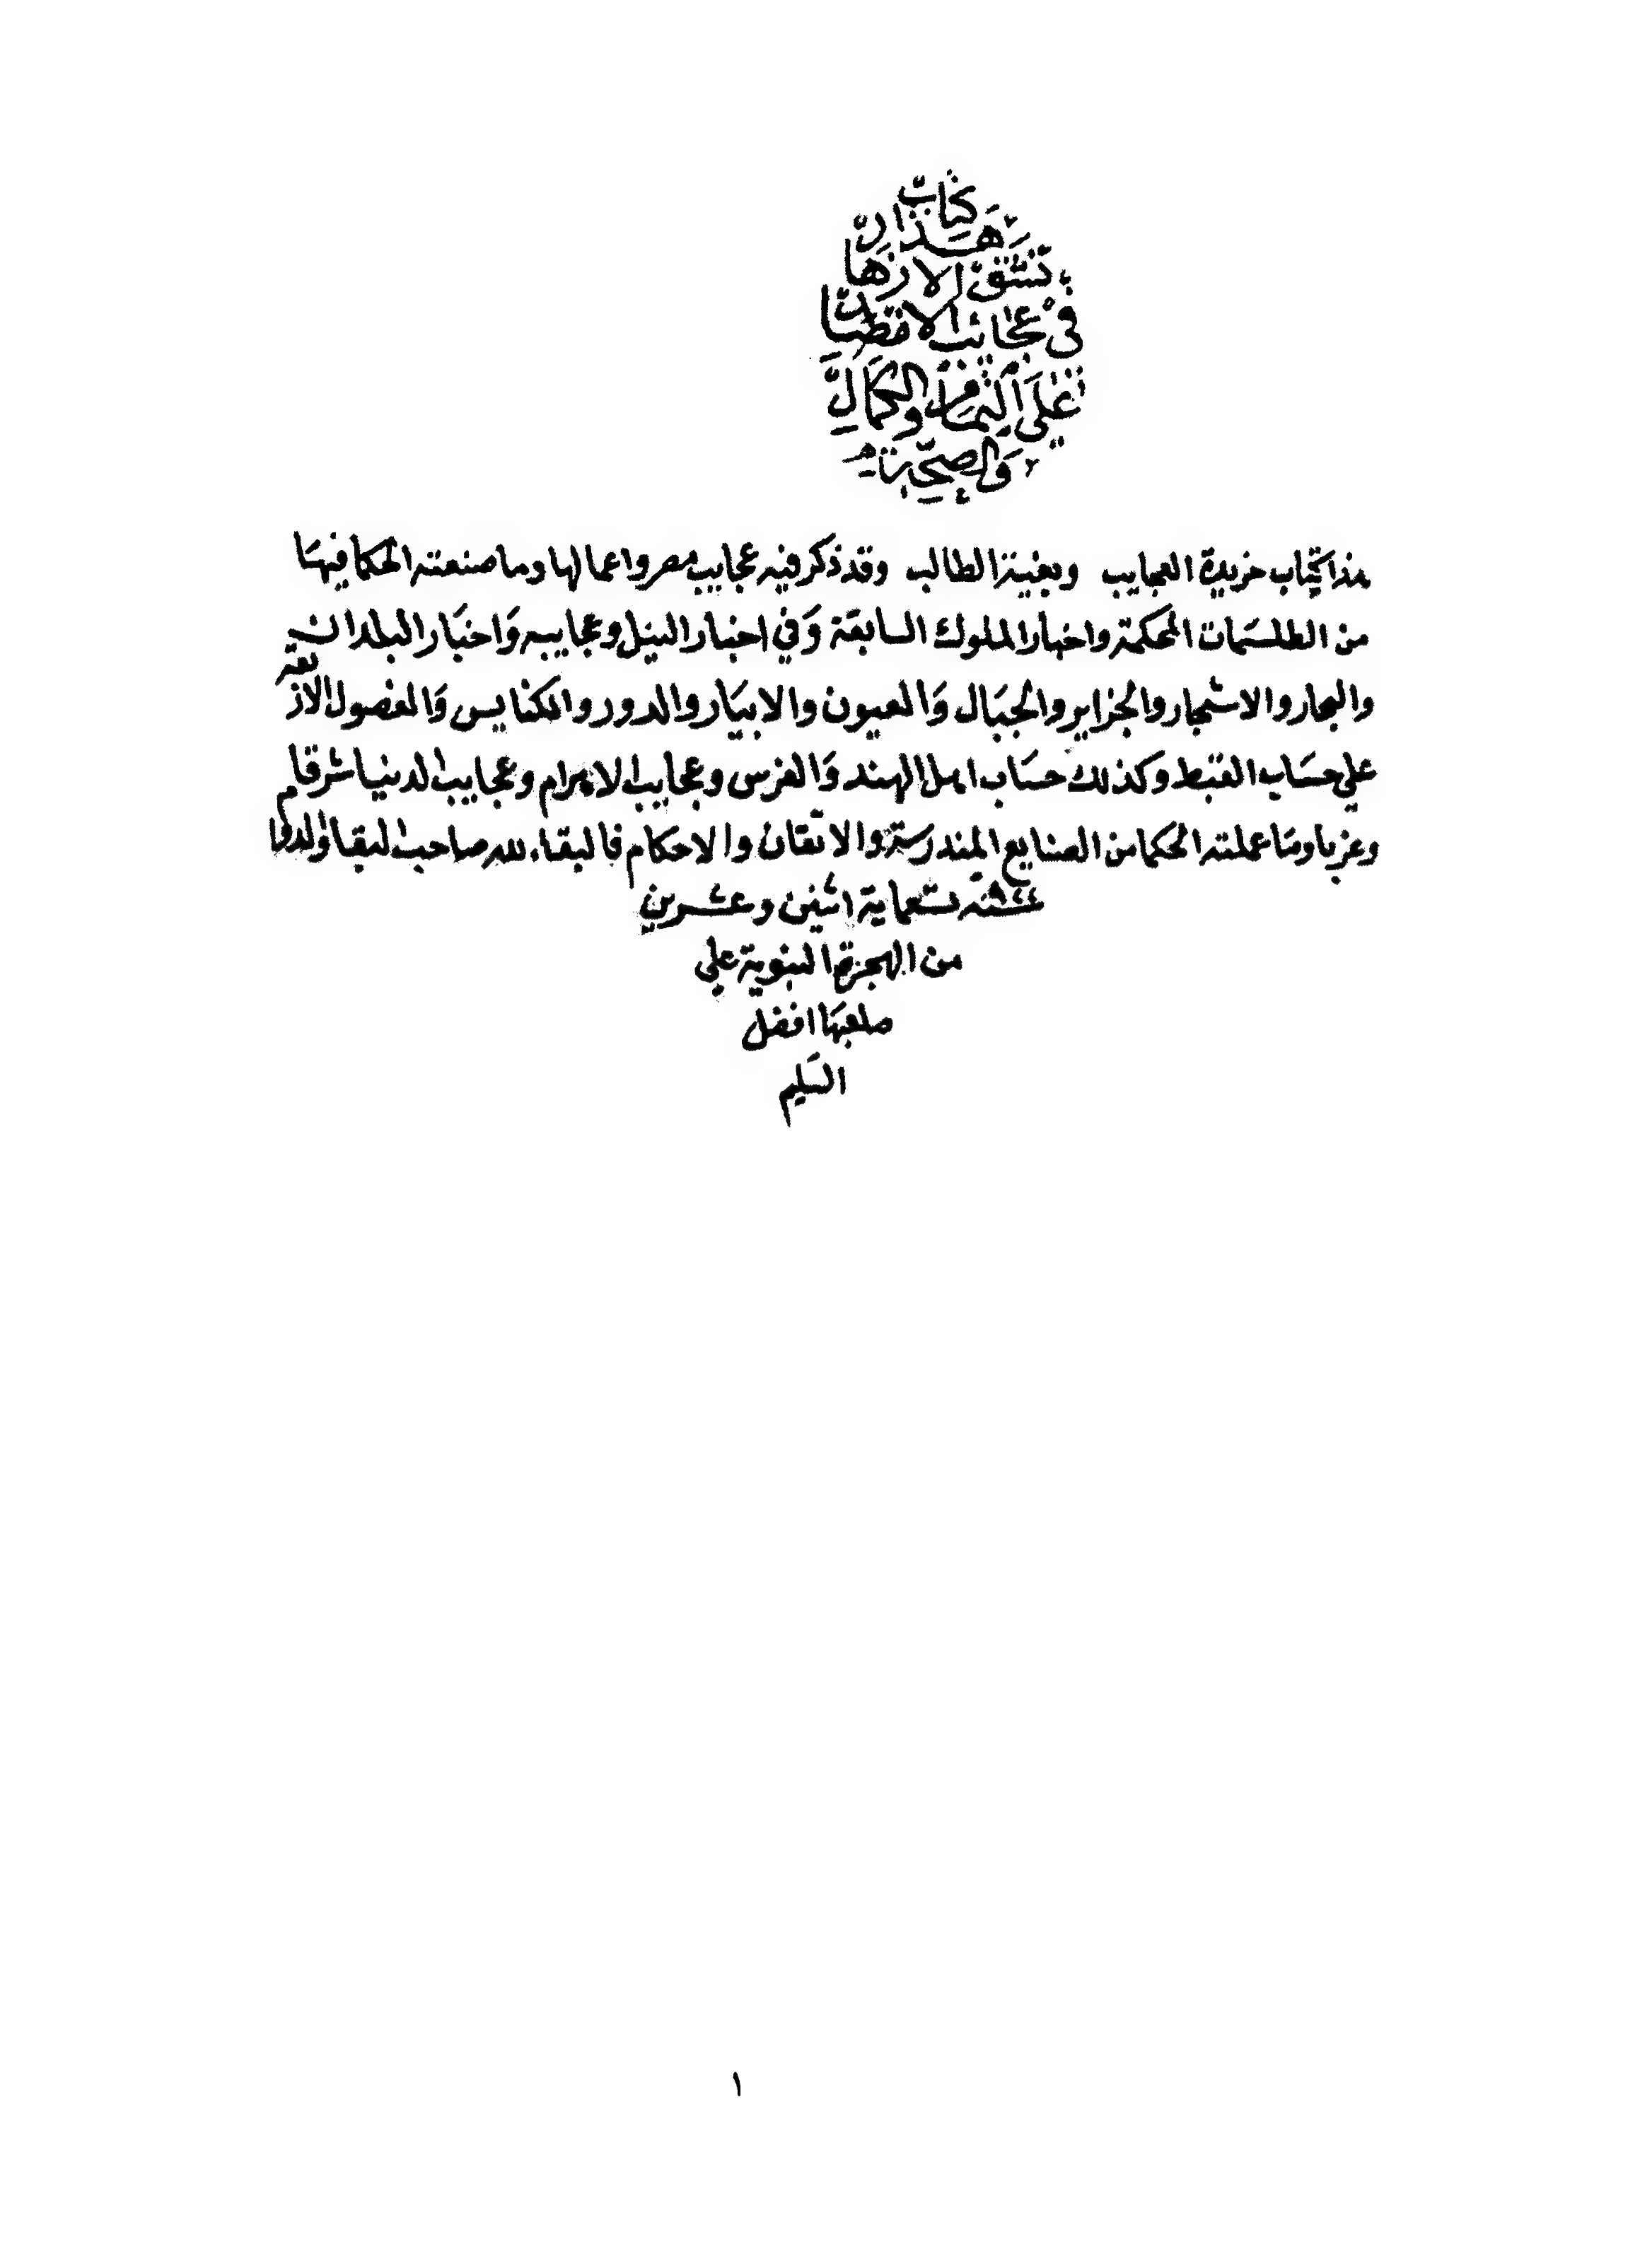 كتاب
هذا
نشق الازهار
في عجايب الاقطار
على التمام والكمال
والصحبة
هذا كتاب خريدة العجايب وبغية الطالب وقد ذكر فيه عجايب مصر واعمالها وما صنعته الحكما فيها
من الطلسمات المحكمة واخبار الملوك السابقة وفي اخبار النيل وعجايبه واخبار البلدان
والبحار والاشجار والجزاير والجبال والعيون والابيار والدور والكنايس والفصول الازبعة
علي حساب القبط وكذلك حساب اهل الهند والفرس وعجايب الاهرام وعجايب الدنيا شرقا
وغربا وما عملته الحكما من الصنايع والاتقان والاحكام فالبقاء لله صاحب البقا والدوام
سنة تسعماية اثنين وعشرين
من الهجرة النبوية علي
صاحبها افضل
السليم
١